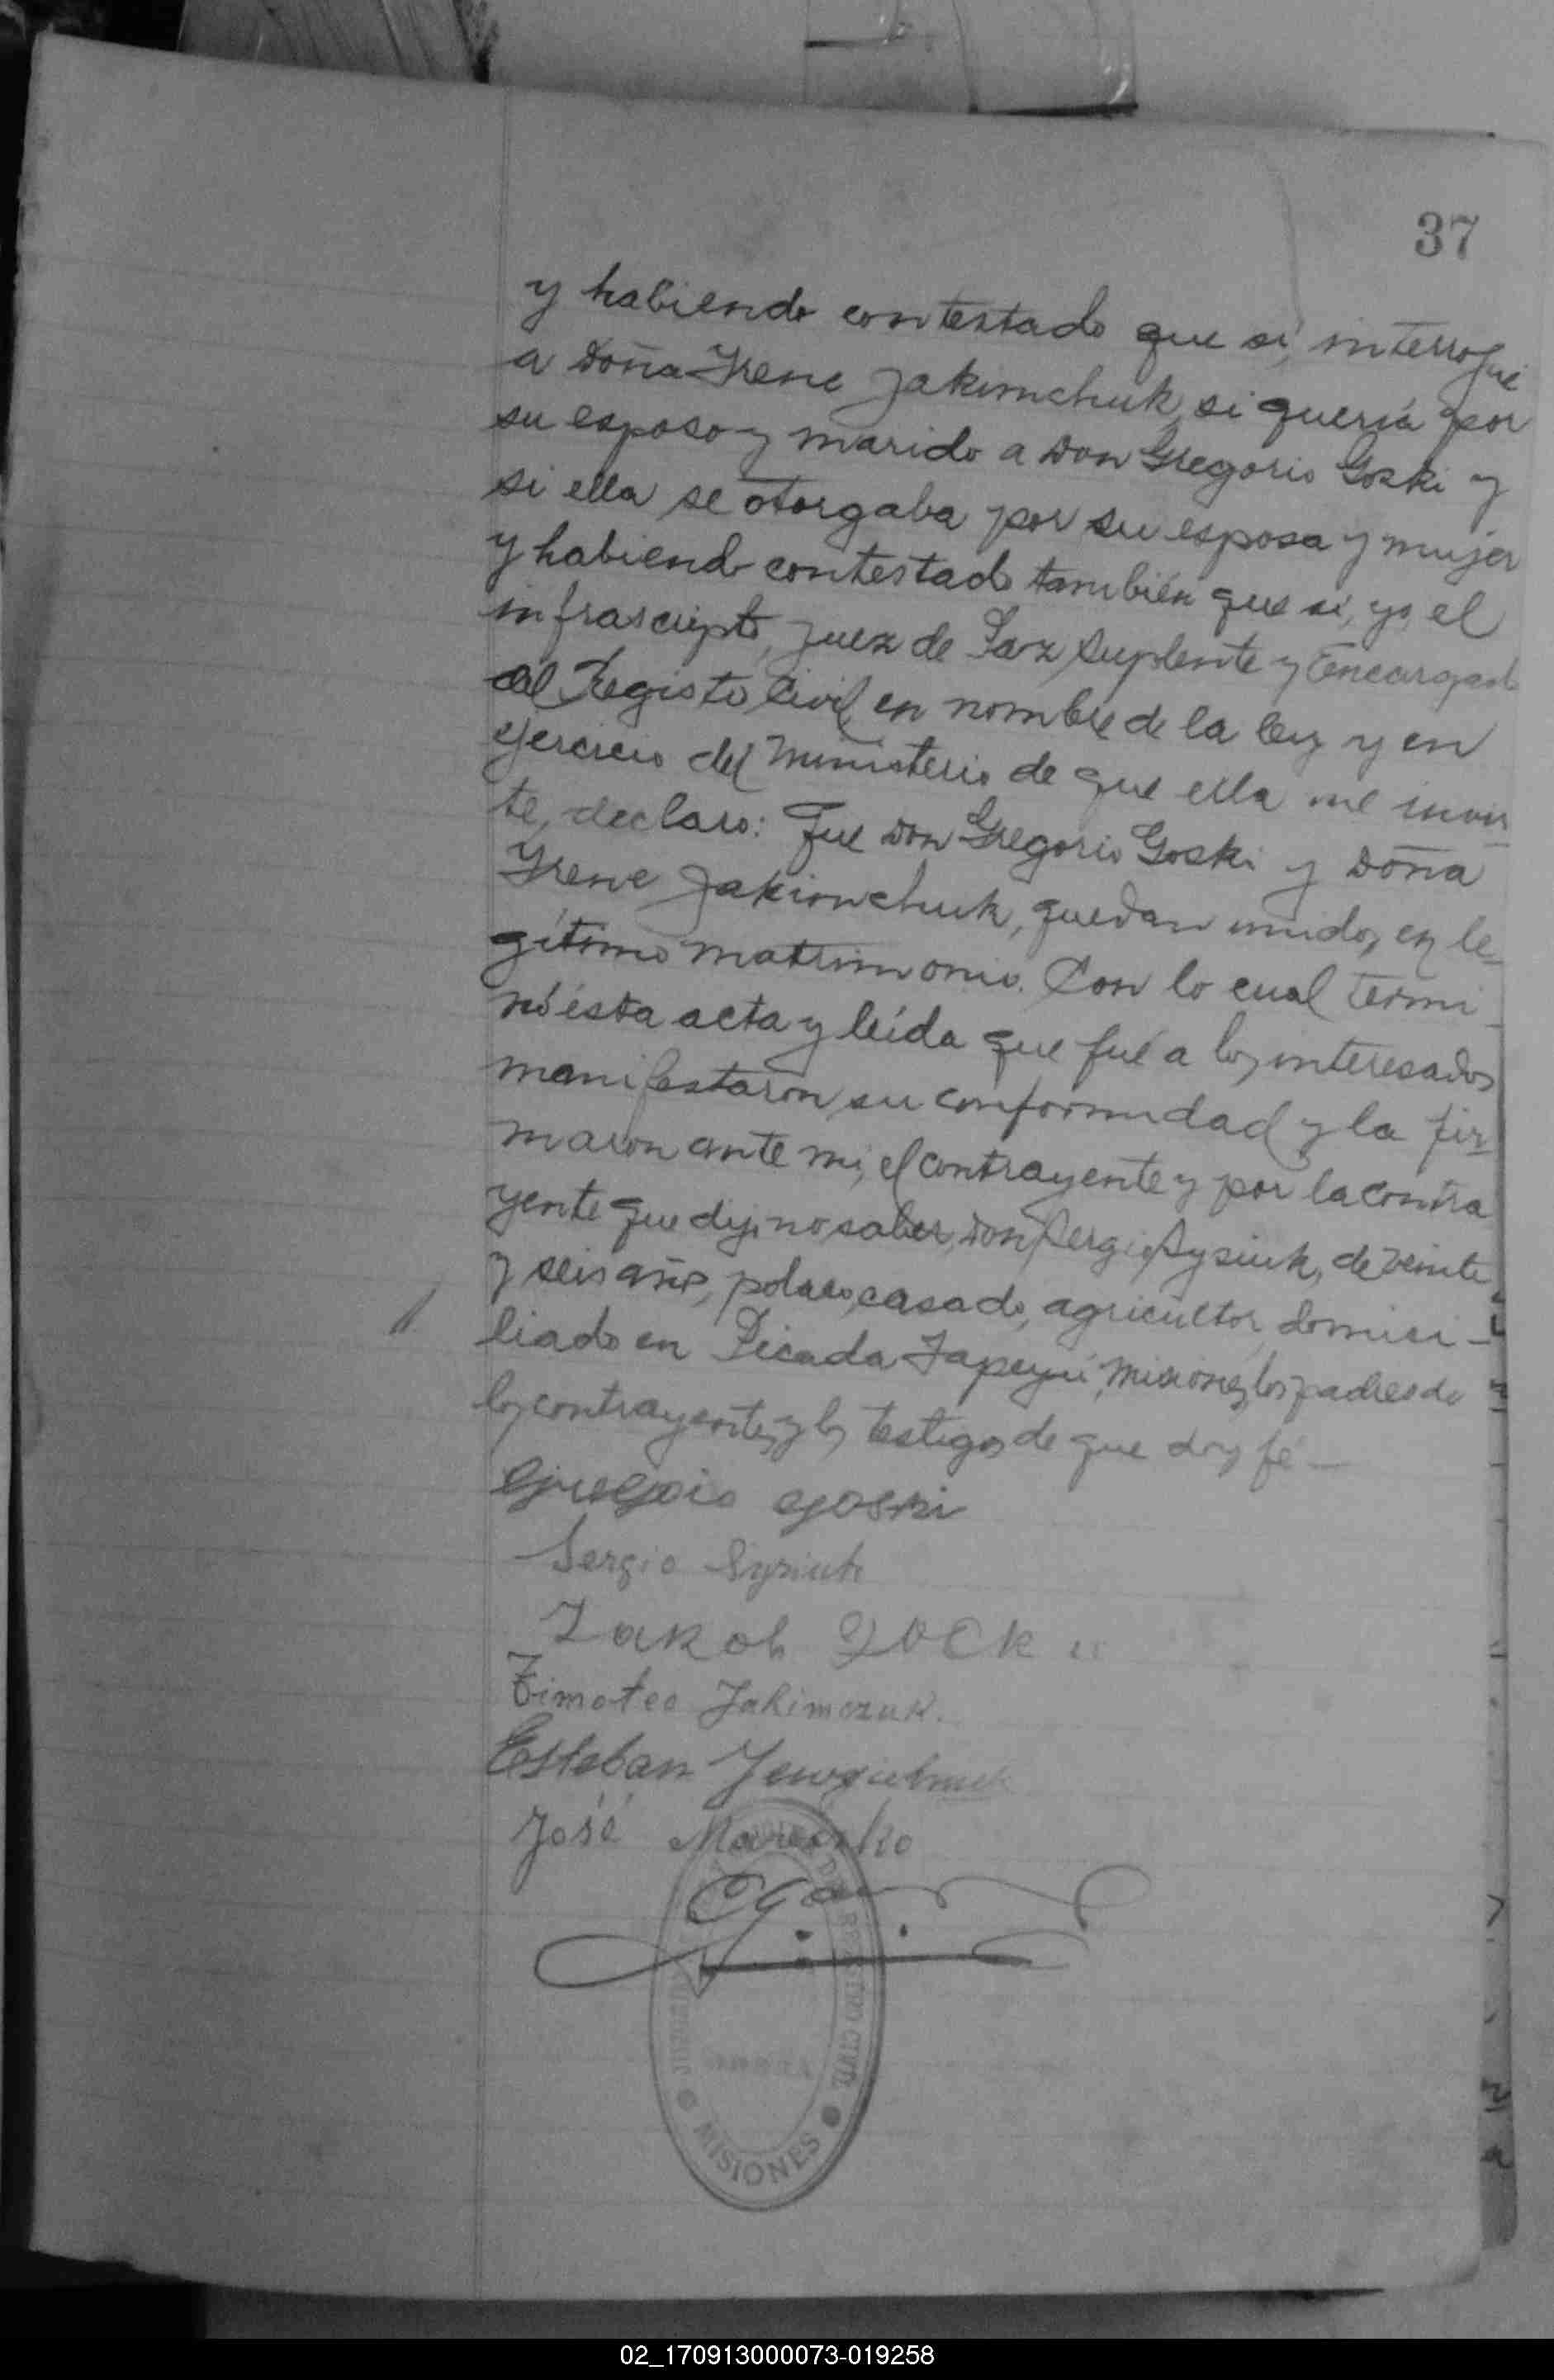 37
y habiendo contestado que sí, interrogué
a Doña Yrene Jakimchuk, si quería por
su esposo y marido a Don Gregorio Goski y
si ella se otorgaba por su esposa y mujer
y habiendo contestado también que sí, yo, el
infrascripto, Juez de Paz Suplente y Encargado
del Registo Civil, en nombre de la ley y en
ejercicio del Ministerio de que ella me inviz
te, declaro: Que Don Gregorio Goski y Doña
Yrene Jakimchuk, quedan unidos en le-
gítimo matrimonio. Con lo cual termi-
nó ésta acta y leída que fué a los interesados
manifestaron su conformidad y la fir-
maron ante mi, el contrayente y por la contra
yente que dijo no saber, Don Sergio Sysiuk, de veinte
y seis años, polaco, casado, agricultor, domici-
liado en Picada Yapeyú, Misiones, los padres de
los contrayentes y los testigos de que doy fé-
Gregorio Goski
Sergio Sysiuk
Jakob
Timoteo Jakimczuk.
Esteban
José
REGISTRO CIVIL
MISIONES
02_170913000073-019258